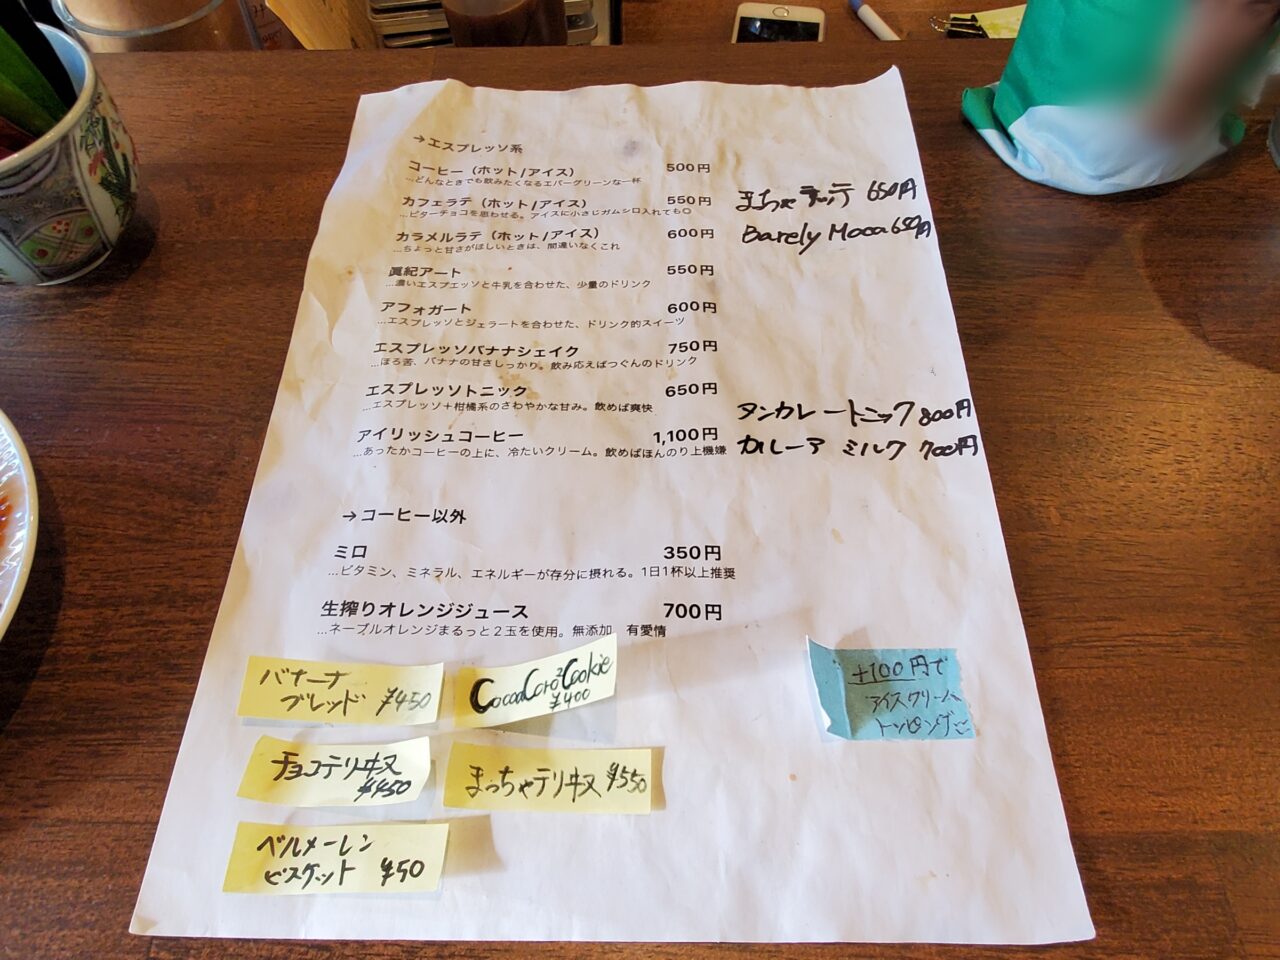 →エスプレッソ系
コーヒー（ホット/アイス） 500円
…どんなときでも飲みたくなるエバーグリーンな一杯
カフェラテ（ホット/アイス） 550円
…ビターチョコを思わせる。アイスに小さじガムシロ入れても◎
まっちゃラッテ 650円
カラメルラテ（ホット/アイス） 600円
…ちょっと甘さがほしいときは、間違いなくこれ
Barely Moca 650円
眞紀アート 550円
…濃いエスプエッソと牛乳を合わせた、少量のドリンク
アフォガート 600円
…エスプレッソとジェラートを合わせた、ドリンク的スイーツ
エスプレッソバナナシェイク 750円
…ほろ苦、バナナの甘さしっかり。飲み応えばつぐんのドリンク
エスプレッソトニック 650円
…エスプレッソ＋柑橘系のさわやかな甘み。飲めば爽快
タンカレートニック 800円
アイリッシュコーヒー 1,100円
…あったかコーヒーの上に、冷たいクリーム。飲めばほんのり上機嫌
カルーア ミルク 700円
→コーヒー以外
ミロ 350円
…ビタミン、ミネラル、エネルギーが存分に摂れる。1日1杯以上推奨
生搾りオレンジジュース 700円
…ネーブルオレンジまるっと２玉を使用。無添加　有愛情
バナーナ
ブレッド ¥450
CocoaCoro²Cookie
¥400
+100円で
アイスクリーム
トッピング
チョコテリーヌ
¥450
まっちゃテリーヌ ¥550
ベルメーレン
ビスケット ¥50